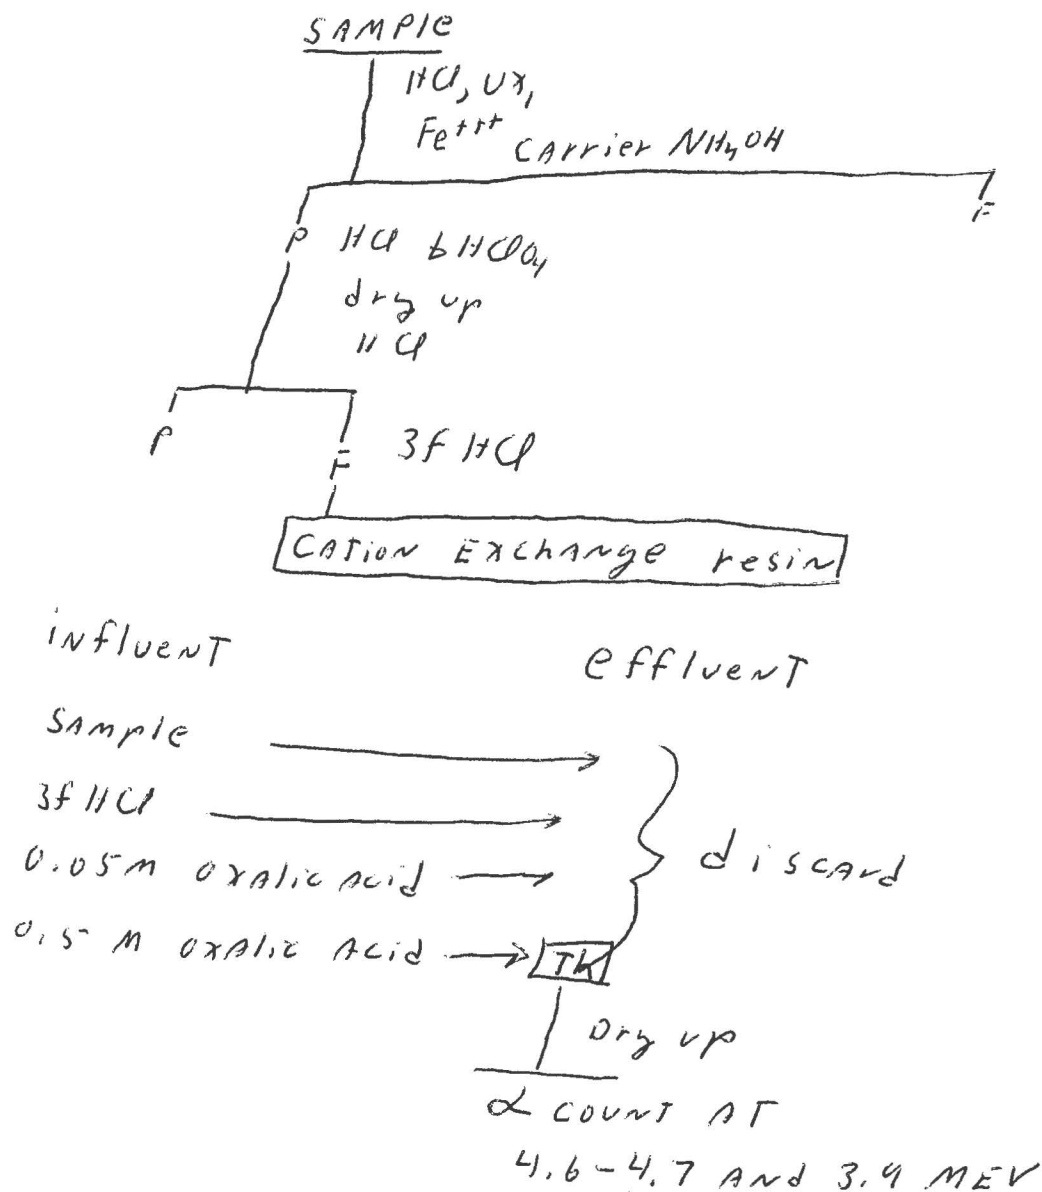 SAMPLE
HCl, UX1
Fe+++ CArrier NH4OH
F
P HCl 6HClO4
dry up
HCl
P
F 3f HCl
CATION EXChANge resin
iNfluENT
effluENT
SAMPle
3f HCl
0.05M OXAlic Acid
discArd
0.5 M OXAlic Acid
Dry up
α COUNT AT
4.6-4.7 ANd 3.9 MEV